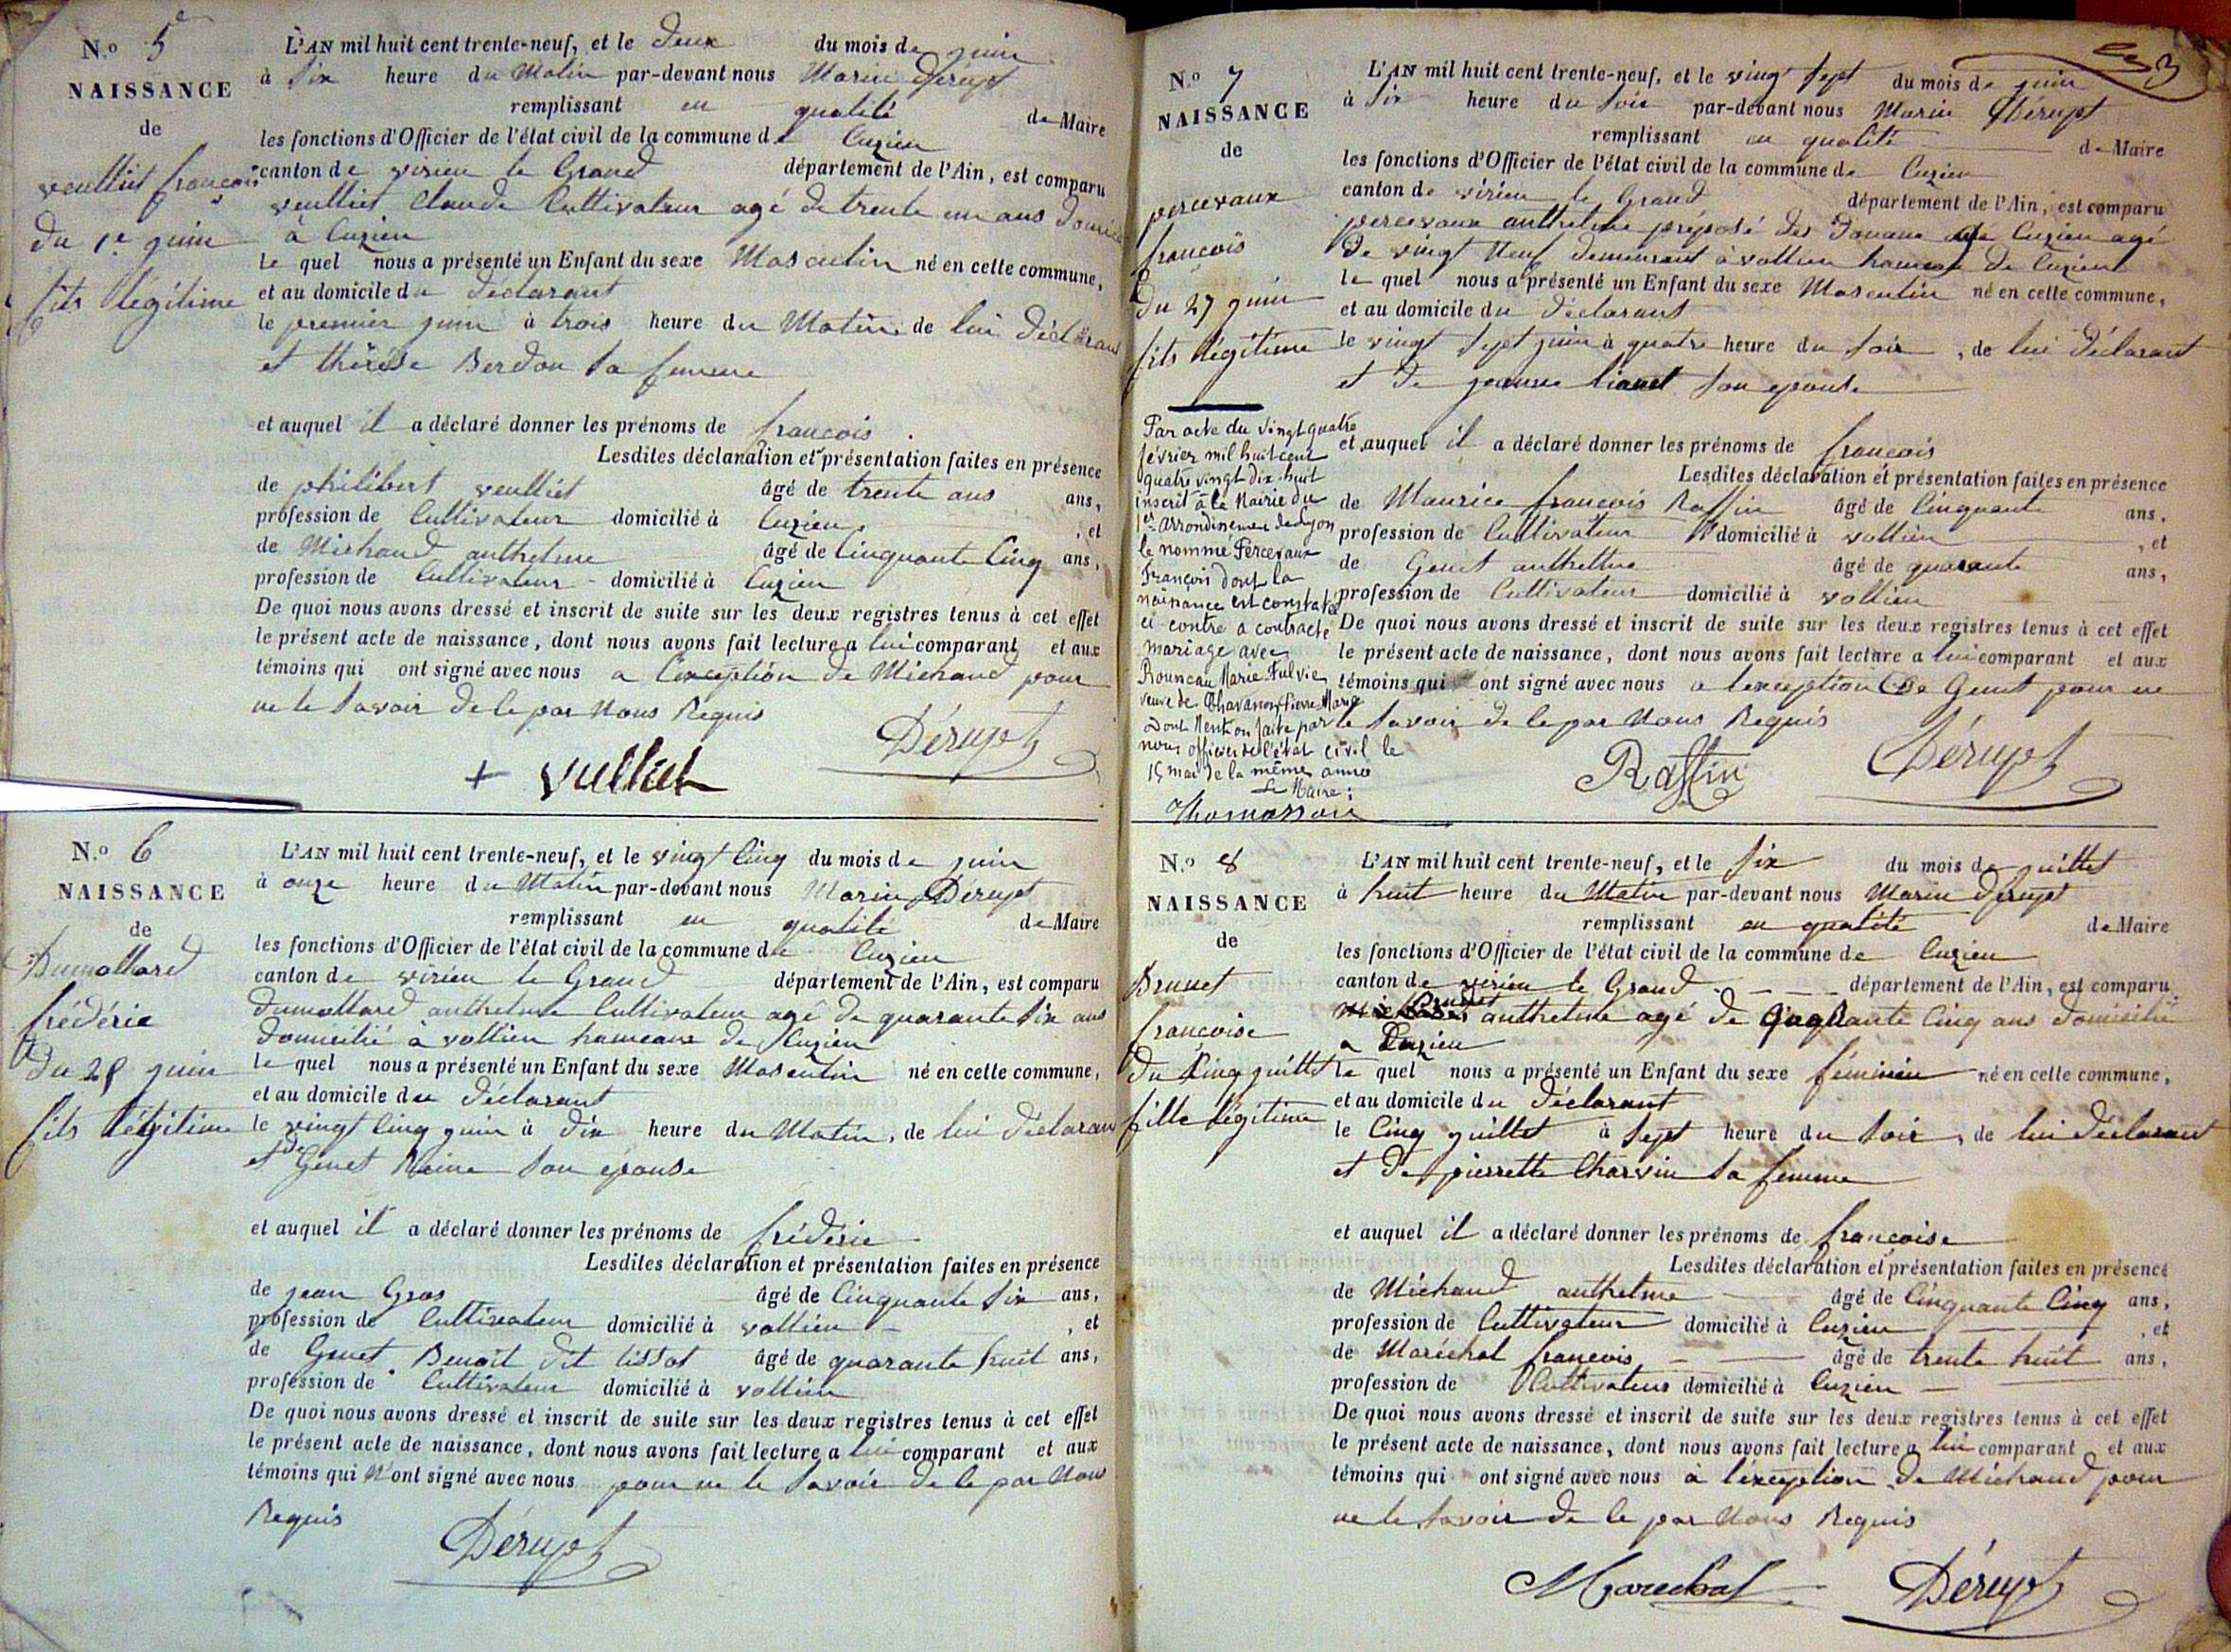 N.º 5e
NAISSANCE
de
veulliet françois
du 1er juin
fils légitime
L'AN mil huit cent trente-neuf, et le deux du mois de juin
à six heure du Matin par-devant nous Marin Dérupt
remplissant en qualité de Maire
les fonctions d'Officier de l'état civil de la commune de Cuzieu
canton de virieu le Grand département de l'Ain, est comparu
veulliet Claude Cultivateur agé de trente un ans
à Cuzieu
le quel nous a présenté un Enfant du sexe Masculin né en cette commune,
et au domicile du déclarant
le premier juin à trois heure du Matin de lui déclarant
et thérèse Berdon sa femme
et auquel il a déclaré donner les prénoms de françois
Lesdites déclaration et présentation faites en présence
de philibert veulliet âgé de trente ans ans,
profession de Cultivateur domicilié à Cuzieu , et
de Michaud anthelme âgé de Cinquante Cinq ans,
profession de Cultivateur domicilié à Cuzieu
De quoi nous avons dressé et inscrit de suite sur les deux registres tenus à cet effet
le présent acte de naissance, dont nous avons fait lecture a lui comparant et aux
témoins qui ont signé avec nous a l'exception de Michaud pour
ne le savoir de le par Nous Requis
+ vulliet Dérupt
N.º 6
NAISSANCE
de
Dumollard
frédéric
du 25 juin
fils légitime
L'AN mil huit cent trente-neuf, et le vingt Cinq du mois de juin
à onze heure du Matin par-devant nous Marin Dérupt
remplissant en qualité de Maire
les fonctions d'Officier de l'état civil de la commune de Cuzieu
canton de virieu le Grand département de l'Ain, est comparu
dumollard anthelme Cultivateur agé de quarante six ans
domicilié à vollien hameau de Cuzieu
le quel nous a présenté un Enfant du sexe Masculin né en cette commune,
et au domicile du déclarant
le vingt Cinq juin à dix heure du Matin, de lui déclarant
et de Genet Reine son épouse
et auquel il a déclaré donner les prénoms de frédéric
Lesdites déclaration et présentation faites en présence
de jean Gros âgé de Cinquante six ans,
profession de Cultivateur domicilié à vollien , et
de Genet Benoit dit tissot âgé de quarante huit ans,
profession de Cultivateur domicilié à vollien
De quoi nous avons dressé et inscrit de suite sur les deux registres tenus à cet effet
le présent acte de naissance, dont nous avons fait lecture a lui comparant et aux
témoins qui N'ont signé avec nous pour ne le savoir de le par Nous
Requis
Dérupt
3
N.º 7
NAISSANCE
de
percevaux
françois
du 27 juin
fils légitime
L'AN mil huit cent trente-neuf, et le vingt sept du mois de juin
à six heure du soir par-devant nous Marin Dérupt
remplissant en qualité de Maire
les fonctions d'Officier de l'état civil de la commune de Cuzieu
canton de virieu le Grand département de l'Ain, est comparu
percevaux anthelme préposé des douane Cuzieu agé
de vingt Neuf demeurant à vollien hameau de Cuzieu
le quel nous a présenté un Enfant du sexe Masculin né en cette commune,
et au domicile du déclarant
le vingt sept juin à quatre heure du soir, de lui déclarant
et de jeanne son epouse
et auquel il a déclaré donner les prénoms de françois
Lesdites déclaration et présentation faites en présence
de Maurice françois Raffin âgé de Cinquante ans,
profession de Cultivateur domicilié à vollien , et
de Genet anthelme âgé de quarante ans,
profession de Cultivateur domicilié à vollien
De quoi nous avons dressé et inscrit de suite sur les deux registres tenus à cet effet
le présent acte de naissance, dont nous avons fait lecture a lui comparant et aux
témoins qui ont signé avec nous a l'exception de Genet pour ne
le savoir de le par Nous Requis
Raffin Dérupt
Par acte du vingt quatre
février mil huit cent
quatre vingt dix-huit
inscrit à la Mairie du
1er arrondissement de Lyon
le nommé Percevaux
François dont la
naissance est constatée
ci-contre a contracté
mariage avec
Rouneau Marie Fulvie
veuve de Chavanon Pierre-Marie
Dont Mention faite par
nous officier de l'état civil le
15 mai de la même année
Le Maire :
Thomasson
N.º 8
NAISSANCE
de
Brunet
françoise
du Cinq juillet
fille légitime
L'AN mil huit cent trente-neuf, et le six du mois de juillet
à huit heure du Matin par-devant nous Marin Dérupt
remplissant en qualité de Maire
les fonctions d'Officier de l'état civil de la commune de Cuzieu
canton de virieu le Grand département de l'Ain, est comparu
Brunet anthelme agé de quarante Cinq ans domicilié
a Cuzieu
le quel nous a présenté un Enfant du sexe féminin né en cette commune,
et au domicile du déclarant
le Cinq juillet à sept heure du soir, de lui déclarant
et de pierrette Charvin sa femme
et auquel il a déclaré donner les prénoms de françoise
Lesdites déclaration et présentation faites en présence
de Michaud anthelme âgé de Cinquante Cinq ans,
profession de Cultivateur domicilié à Cuzieu , et
de Maréchal françois âgé de trente huit ans,
profession de Cultivateur domicilié à Cuzieu
De quoi nous avons dressé et inscrit de suite sur les deux registres tenus à cet effet
le présent acte de naissance, dont nous avons fait lecture a lui comparant et aux
témoins qui ont signé avec nous à l'exception de Michaud pour
ne le savoir de le par Nous Requis
Marechal Dérupt